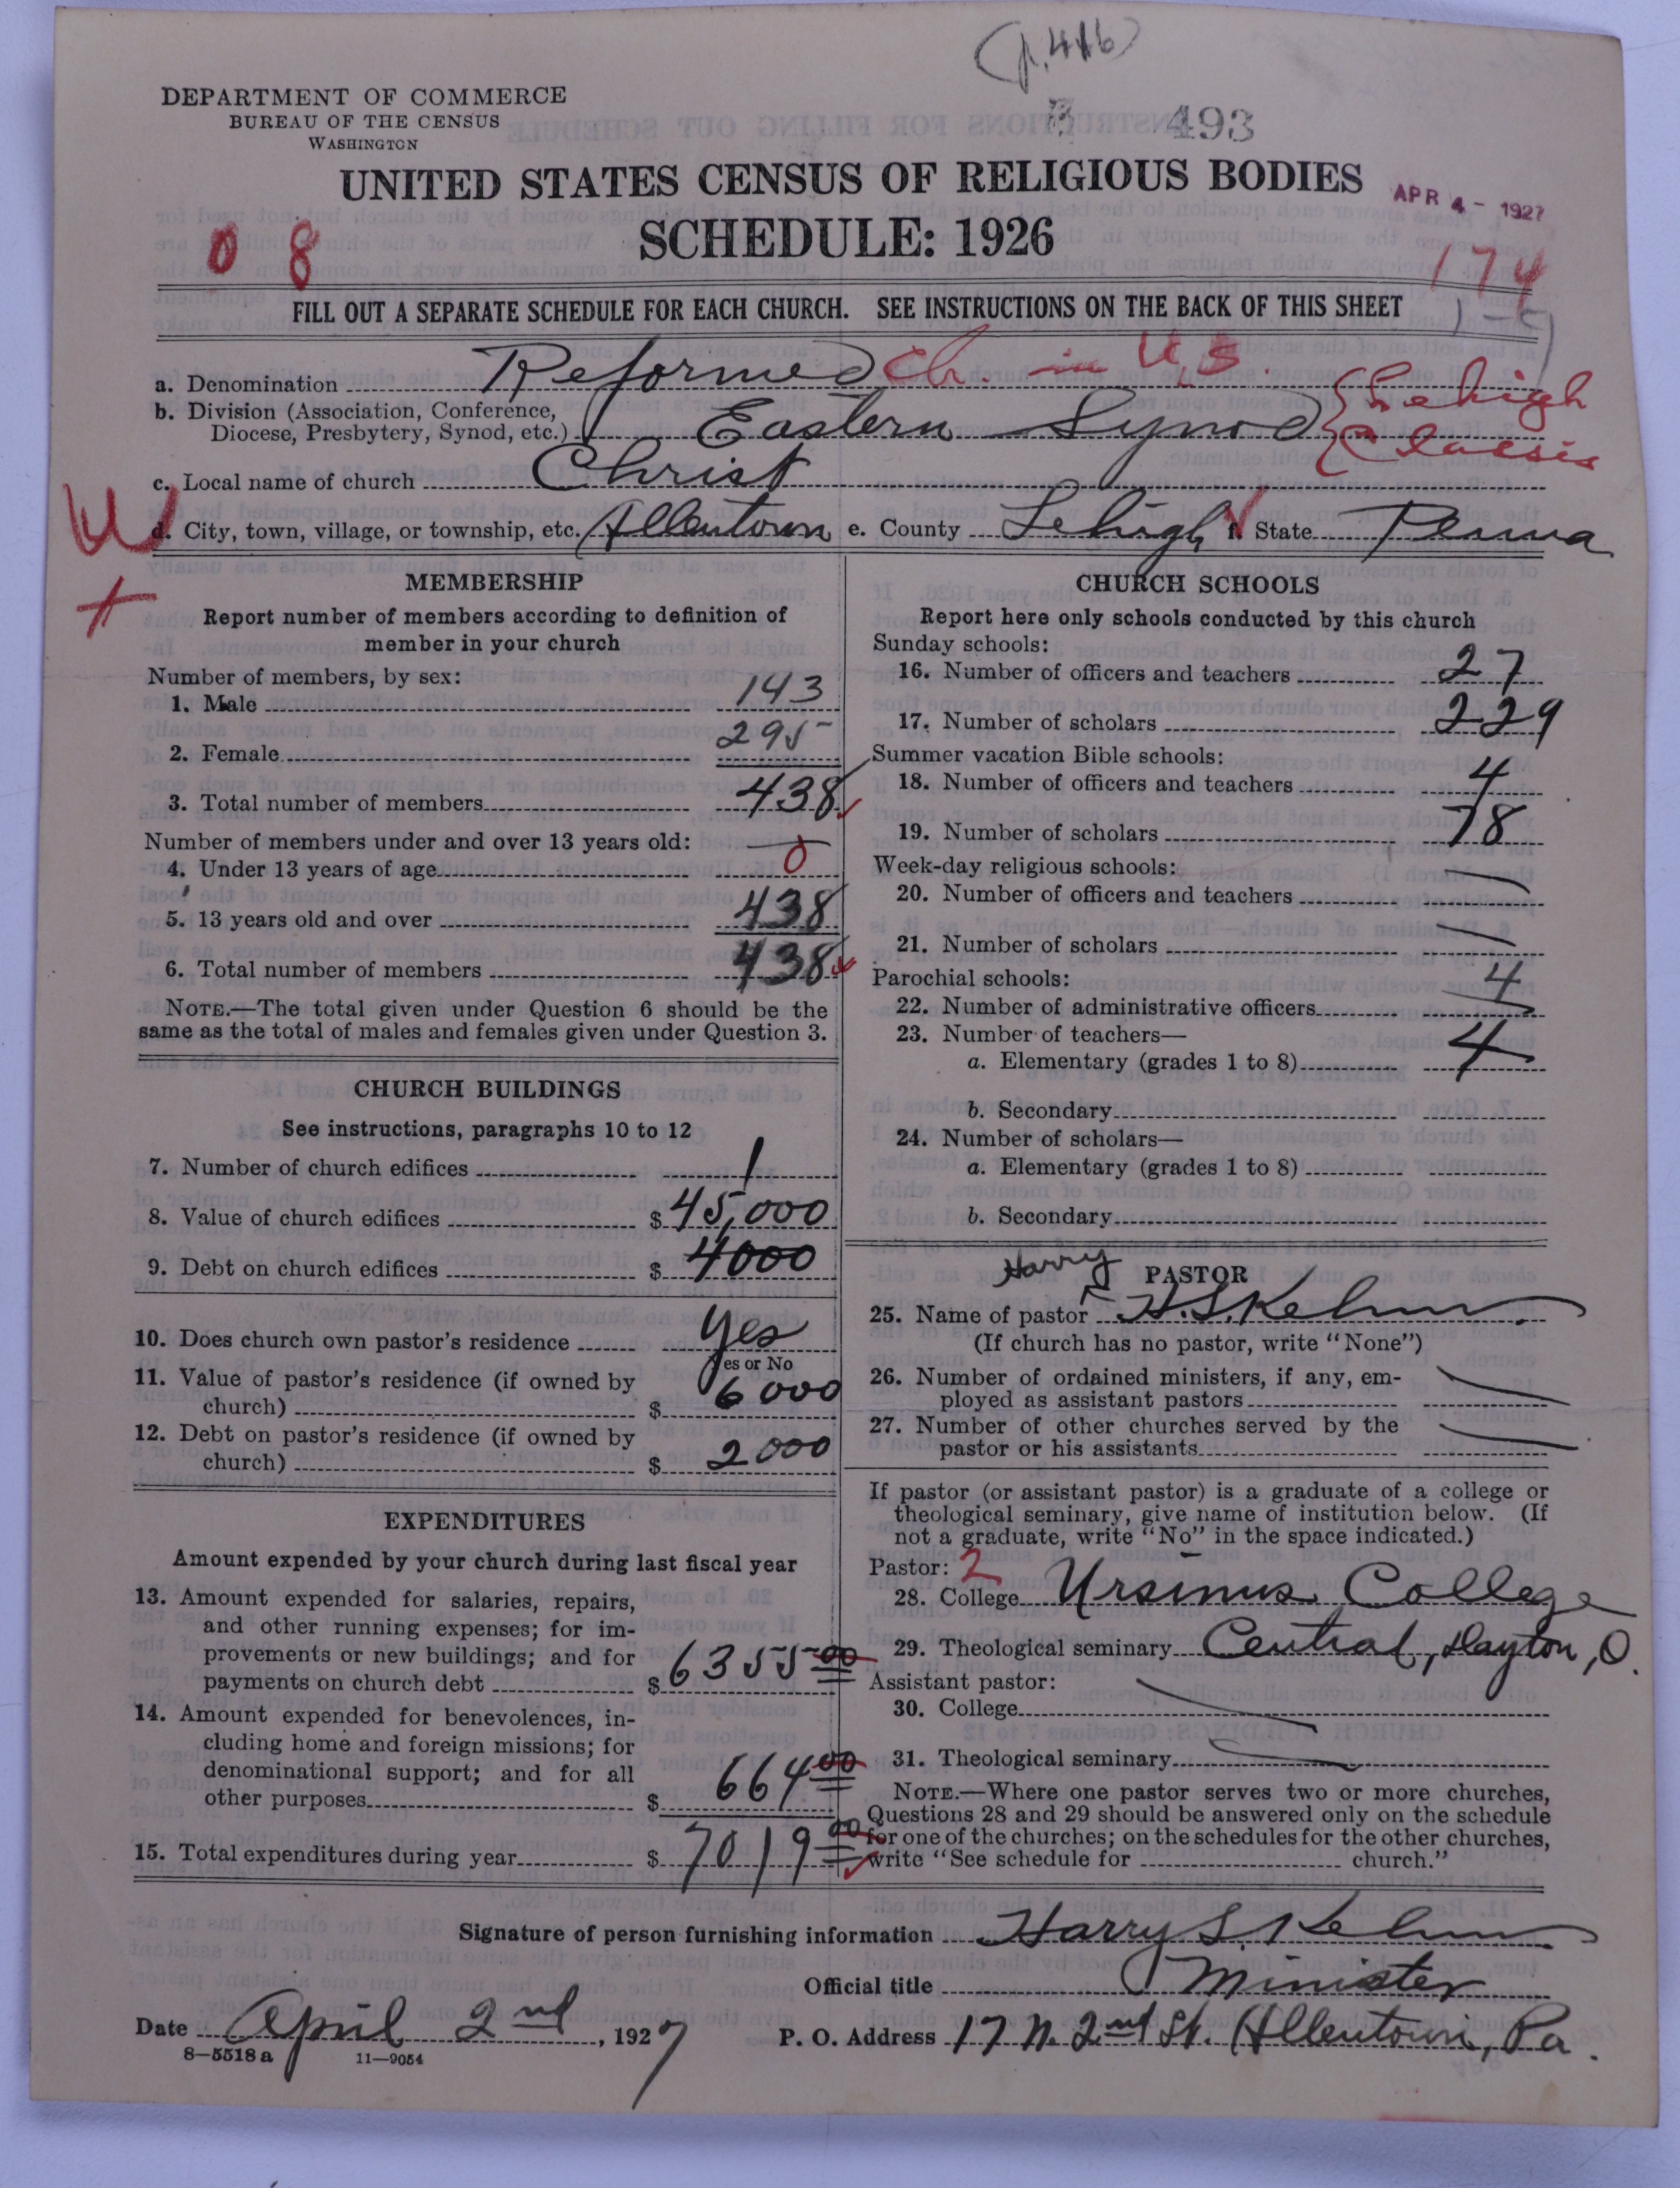 (p. 416)
DEPARTMENT OF COMMERCE
BUREAU OF THE CENSUS
WASHINGTON
493
UNITED STATES CENSUS OF RELIGIOUS BODIES
APR 4 - 1927
SCHEDULE: 1926
0 8
174
FILL OUT A SEPARATE SCHEDULE FOR EACH CHURCH. SEE INSTRUCTIONS ON THE BACK OF THIS SHEET
a. Denomination Reformed Ch. in U.S.
b. Division (Association, Conference,
Diocese, Presbytery, Synod, etc.) Eastern Synod { Lehigh Classis
c. Local name of church Christ
d. City, town, village, or township, etc. Allentown e. County Lehigh f. State Penna
MEMBERSHIP
Report number of members according to definition of
member in your church
Number of members, by sex:
1. Male 143
2. Female 295
3. Total number of members 438
Number of members under and over 13 years old:
4. Under 13 years of age 0
5. 13 years old and over 438
6. Total number of members 438
NOTE.—The total given under Question 6 should be the
same as the total of males and females given under Question 3.
CHURCH BUILDINGS
See instructions, paragraphs 10 to 12
7. Number of church edifices 1
8. Value of church edifices $ 45,000
9. Debt on church edifices $ 4000
10. Does church own pastor's residence Yes
Yes or No
11. Value of pastor's residence (if owned by
church) $ 6000
12. Debt on pastor's residence (if owned by
church) $ 2000
EXPENDITURES
Amount expended by your church during last fiscal year
13. Amount expended for salaries, repairs,
and other running expenses; for im-
provements or new buildings; and for
payments on church debt $ 6355 00
14. Amount expended for benevolences, in-
cluding home and foreign missions; for
denominational support; and for all
other purposes $ 664 00
15. Total expenditures during year $ 7019 00
CHURCH SCHOOLS
Report here only schools conducted by this church
Sunday schools:
16. Number of officers and teachers 27
17. Number of scholars 229
Summer vacation Bible schools:
18. Number of officers and teachers 4
19. Number of scholars 78
Week-day religious schools:
20. Number of officers and teachers
21. Number of scholars
Parochial schools:
22. Number of administrative officers 4
23. Number of teachers—
a. Elementary (grades 1 to 8) 4
b. Secondary
24. Number of scholars—
a. Elementary (grades 1 to 8)
b. Secondary
PASTOR
Harry
25. Name of pastor H. S. Kehm
(If church has no pastor, write "None")
26. Number of ordained ministers, if any, em-
ployed as assistant pastors
27. Number of other churches served by the
pastor or his assistants
If pastor (or assistant pastor) is a graduate of a college or
theological seminary, give name of institution below. (If
not a graduate, write "No" in the space indicated.)
Pastor: 2
28. College Ursinus College
29. Theological seminary Central, Dayton, O.
Assistant pastor:
30. College
31. Theological seminary
NOTE.—Where one pastor serves two or more churches,
Questions 28 and 29 should be answered only on the schedule
for one of the churches; on the schedules for the other churches,
write "See schedule for church."
Signature of person furnishing information Harry S. Kehm
Official title Minister
Date April 2nd, 1927 P. O. Address 17 N. 2nd St. Allentown, Pa.
8—5518a 11—9054